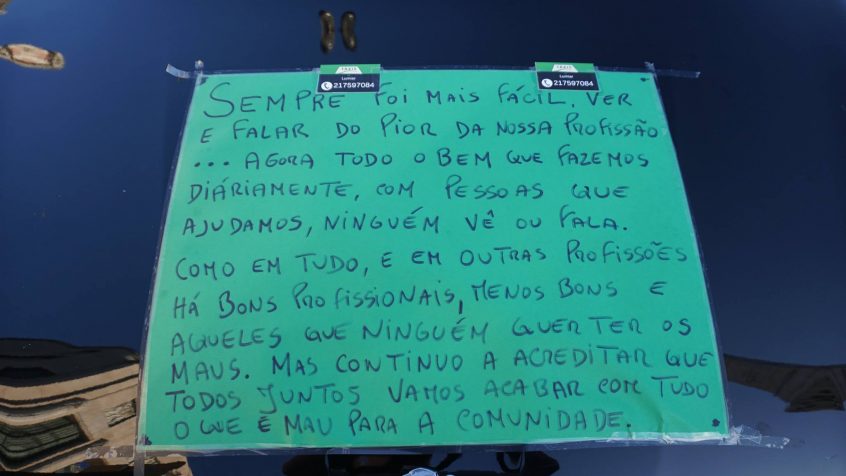 TAXIS
Lumiar
217597084
TAXIS
Lumiar
217597084
SEMPRE FOI MAIS FÁCIL, VER
E FALAR DO PIOR DA NOSSA PROFISSÃO
... AGORA TODO O BEM QUE FAZEMOS
DIÁRIAMENTE, COM PESSOAS QUE
AJUDAMOS, NINGUÉM VÊ OU FALA.
COMO EM TUDO, E EM OUTRAS PROFISSÕES
HÁ BONS PROFISSIONAIS, MENOS BONS E
AQUELES QUE NINGUÉM QUER TER OS
MAUS. MAS CONTINUO A ACREDITAR QUE
TODOS JUNTOS VAMOS ACABAR COM TUDO
O QUE É MAU PARA A COMUNIDADE.